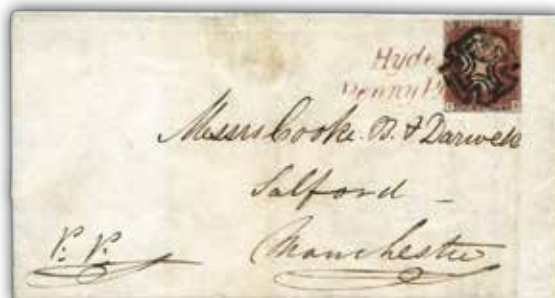 Hyde
Penny P
Messrs Cooke. D. & Darwell
Salford
Manchester
P. P.